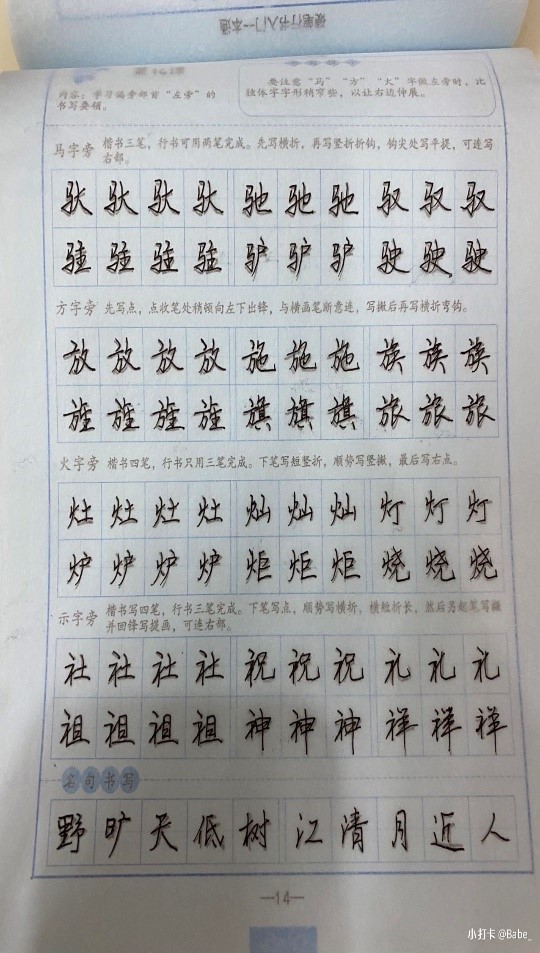 硬笔行书入门一本通
内容：学习偏旁部首“左旁”的
书写要领。
要注意“马”“方”“火”字做左旁时，比
独体字字形稍窄些，以让右边伸展。
马字旁 楷书三笔，行书可用两笔完成。先写横折，再写竖折折钩，钩尖处写平提，可连写
右部。
驮驮驮驮驰驰驰驭驭驭
驻驻驻驻驴驴驴驶驶驶
方字旁 先写点，点收笔处稍顿向左下出锋，与横画笔断意连，写撇后再写横折弯钩。
放放放放施施施族族族
旌旌旌旌旗旗旗旅旅旅
火字旁 楷书四笔，行书只用三笔完成。下笔写短竖折，顺势写竖撇，最后写右点。
灶灶灶灶灿灿灿灯灯灯
炉炉炉炉炬炬炬烧烧烧
示字旁 楷书写四笔，行书三笔完成。下笔写点，顺势写横折，横短折长，然后另起笔写撇
并回锋写提画，可连右部。
社社社社祝祝祝礼礼礼
祖祖祖祖神神神祥祥祥
名句书写
野旷天低树江清月近人
—14—
小打卡 @Babe_